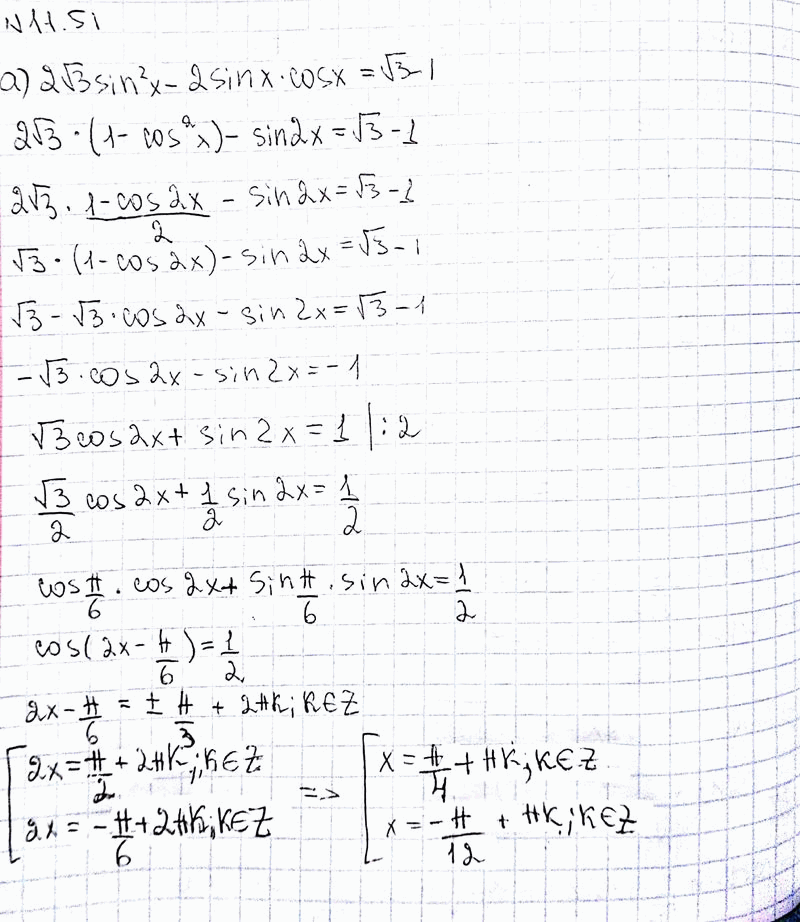 N 11.51
а) 2√3sin²x − 2sinx·cosx = √3−1
2√3·(1−cos²x) − sin2x = √3−1
2√3·(1−cos2x)/2 − sin2x = √3−1
√3·(1−cos2x) − sin2x = √3−1
√3 − √3·cos2x − sin2x = √3−1
−√3·cos2x − sin2x = −1
√3cos2x + sin2x = 1 |:2
√3/2 cos2x + 1/2 sin2x = 1/2
cos π/6 · cos2x + sin π/6 · sin2x = 1/2
cos(2x − π/6) = 1/2
2x − π/6 = ± π/3 + 2πk; k∈Z
[ 2x = π/2 + 2πk; k∈Z => [ x = π/4 + πk, k∈Z
2x = −π/6 + 2πk, k∈Z x = −π/12 + πk; k∈Z